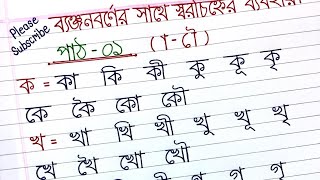 Please Subscribe
ব্যঞ্জনবর্ণের সাথে স্বরচিহ্নের ব্যবহার।
পাঠ - ০১ ( া - ৌ )
ক = কা কি কী কু কূ কৃ
কে কৈ কো কৌ
খ = খা খি খী খু খূ খৃ
খে খৈ খো খৌ